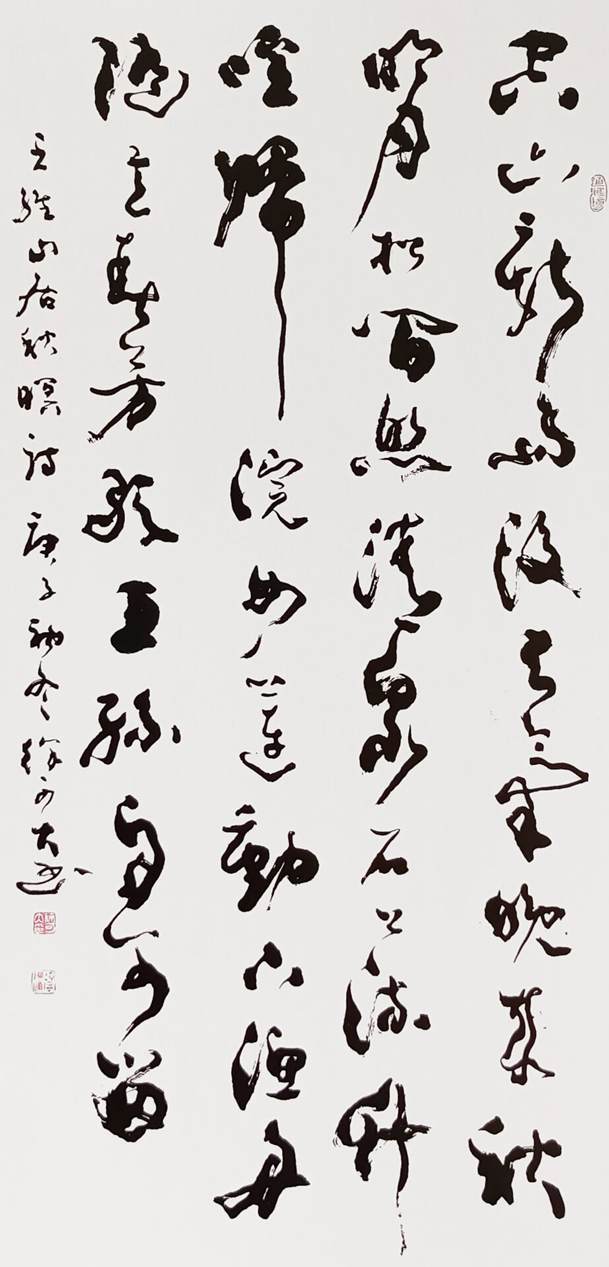 空山新雨後天氣晚來秋
明月松間照清泉石上流竹
喧歸浣女蓮動下漁舟
隨意春芳歇王孫自可留
王維山居秋暝詩庚子初冬徐